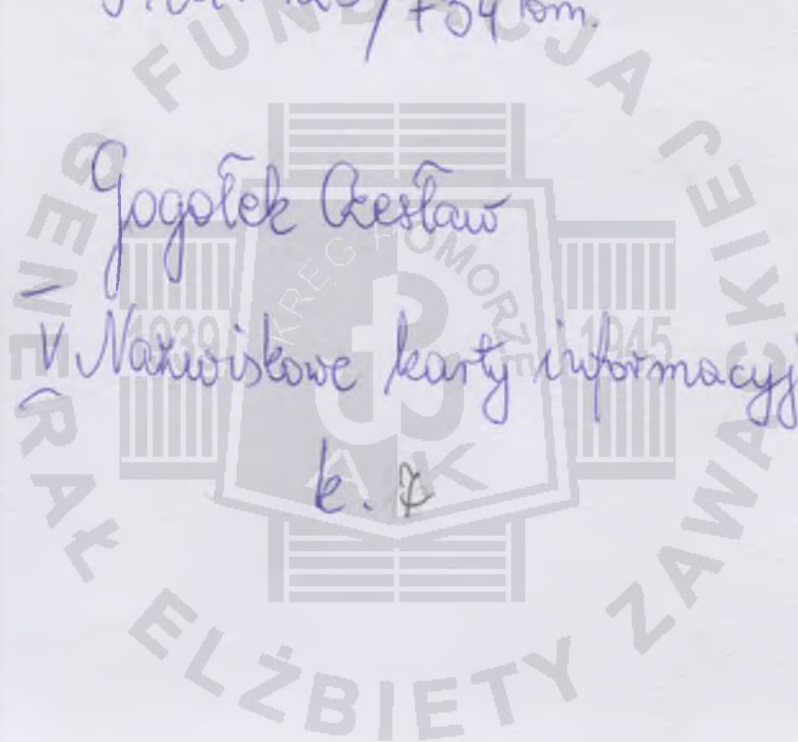 / 734 Pom.
Gogołek Czesław
V Nazwiskowe karty informacyj
k. 7
FUNDACJA GENERAŁ ELŻBIETY ZAWACKIEJ
OKRĘG AK POMORZE
1939 1945
AK